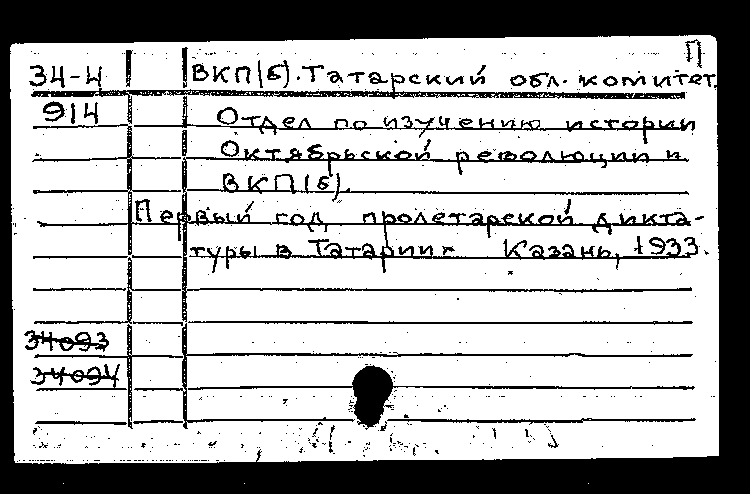 П
34-4 ВКП(б). Татарский обл. комитет.
914 Отдел по изучению истории
Октябрьской революции и
ВКП(б).
Первый год пролетарской дикта-
туры в Татарии. Казань, 1933.
34093
34094